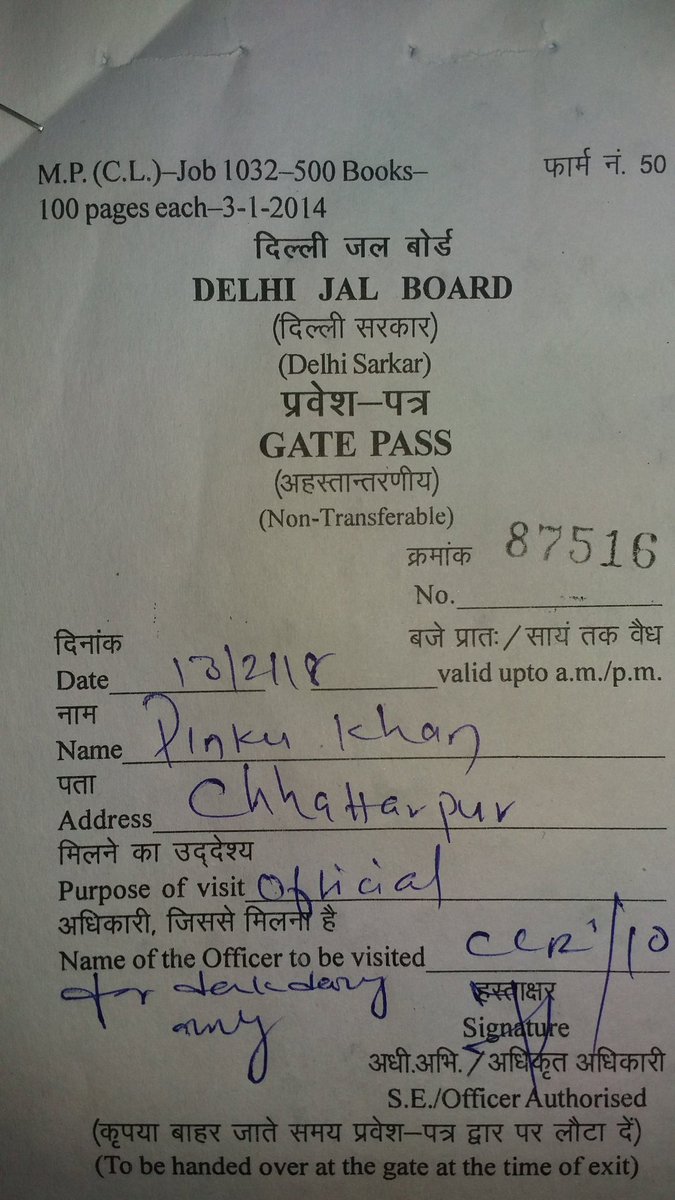 M.P. (C.L.)–Job 1032–500 Books– फार्म नं. 50
100 pages each–3-1-2014
दिल्ली जल बोर्ड
DELHI JAL BOARD
(दिल्ली सरकार)
(Delhi Sarkar)
प्रवेश–पत्र
GATE PASS
(अहस्तान्तरणीय)
(Non-Transferable)
क्रमांक 87516
No.
दिनांक बजे प्रातः/सायं तक वैध
Date 13/2/18 valid upto a.m./p.m.
नाम
Name Pinku Khan
पता
Address Chhattarpur
मिलने का उद्देश्य
Purpose of visit Official
अधिकारी, जिससे मिलना है
Name of the Officer to be visited
हस्ताक्षर
Signature
अधी.अभि./अधिकृत अधिकारी
S.E./Officer Authorised
(कृपया बाहर जाते समय प्रवेश–पत्र द्वार पर लौटा दें)
(To be handed over at the gate at the time of exit)